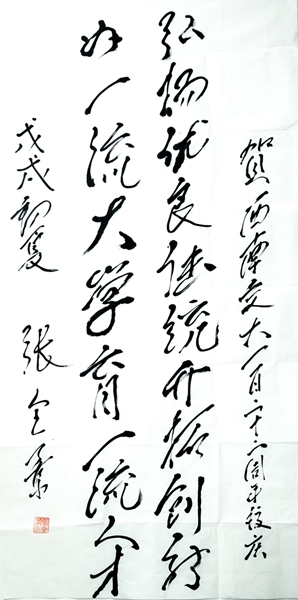 賀西南交大一百二十二周年校庆
弘揚优良传統开拓创新
办一流大學育一流人才
戊戌初夏 張全景